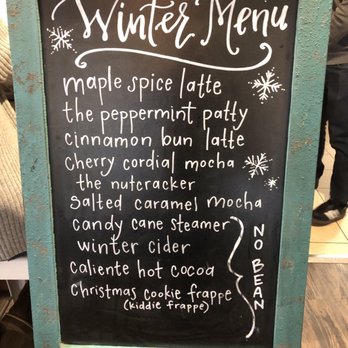 Winter Menu
maple spice latte
the peppermint patty
cinnamon bun latte
Cherry cordial mocha
the nutcracker
Salted caramel mocha
candy cane steamer
winter cider
caliente hot cocoa
Christmas cookie frappe
(kiddie frappe)
NO BEAN